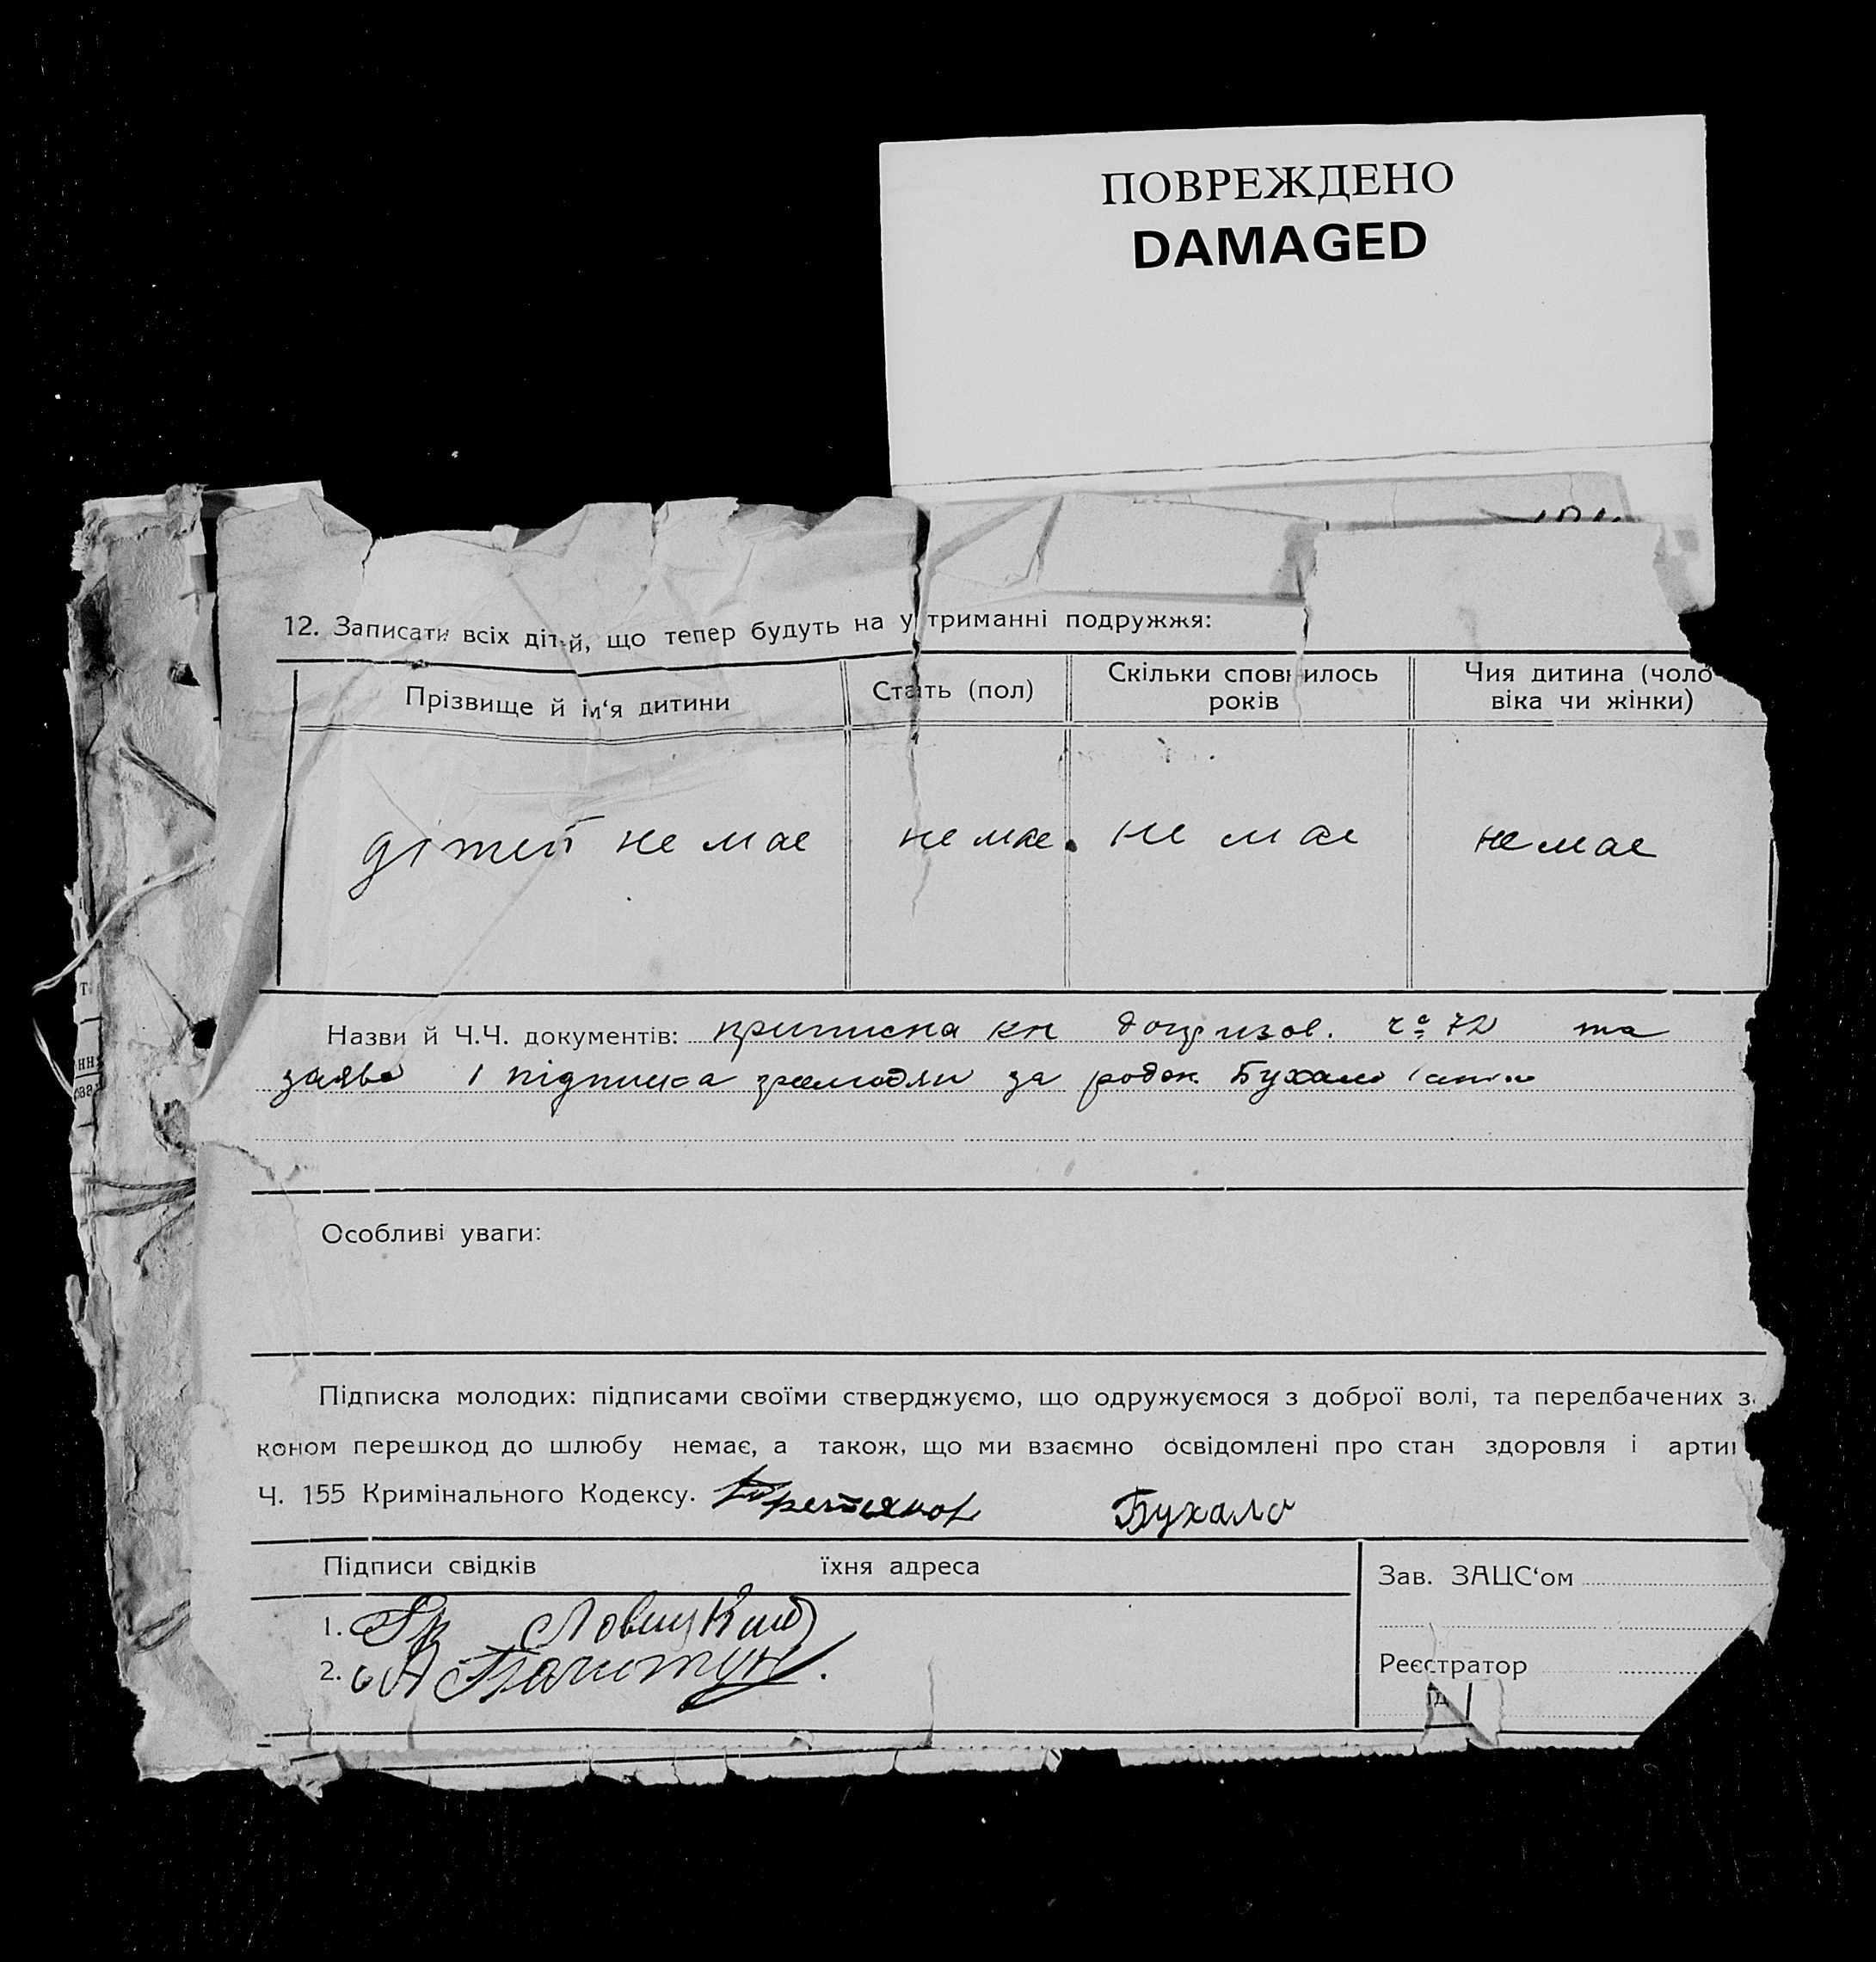 ПОВРЕЖДЕНО
DAMAGED
12. Записати всіх дітей, що тепер будуть на утриманні подружжя:
Прізвище й ім‘я дитини Стать (пол) Скільки сповнилось років Чия дитина (чоло
віка чи жінки)
дітей не має не має. не має не має
Назви й Ч.Ч. документів: приписна кн допризов. ч 72 та
заява і підписка за Бухало
Особливі уваги:
Підписка молодих: підписами своїми стверджуємо, що одружуємося з доброї волі, та передбачених з
коном перешкод до шлюбу немає, а також, що ми взаємно освідомлені про стан здоровля і арти
Ч. 155 Кримінального Кодексу. Бухало
Підписи свідків їхня адреса Зав. ЗАЦС‘ом
1. Гр
2. А
Реєстратор